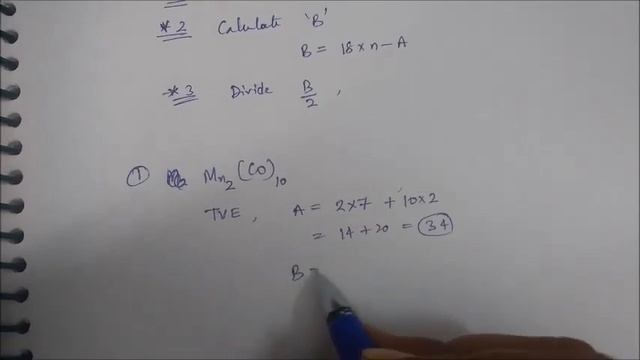 *2 Calculate 'B'
B = 18 × n − A
*3 Divide B/2 ,
① Mn₂(CO)₁₀
TVE, A = 2×7 + 10×2
= 14 + 20 = 34
B =